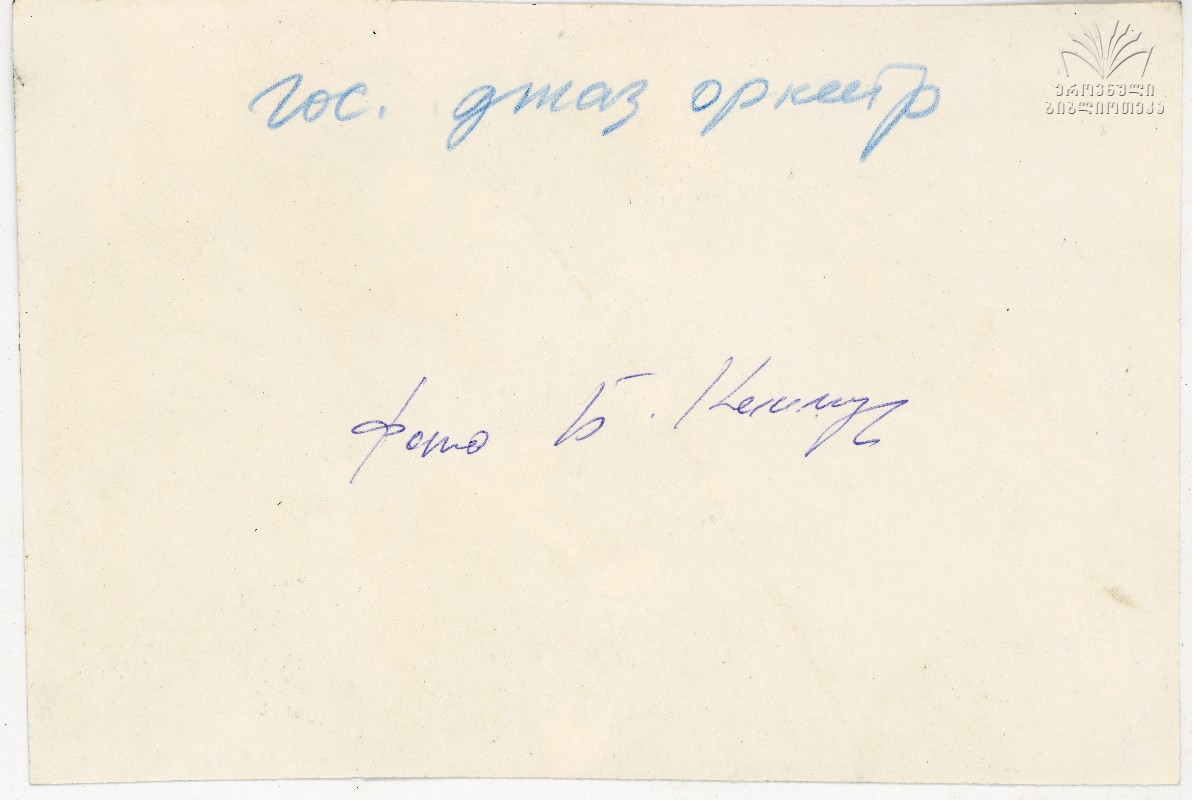 гос. джаз оркестр
ეროვნული
ბიბლიოთეკა
Фото Б.